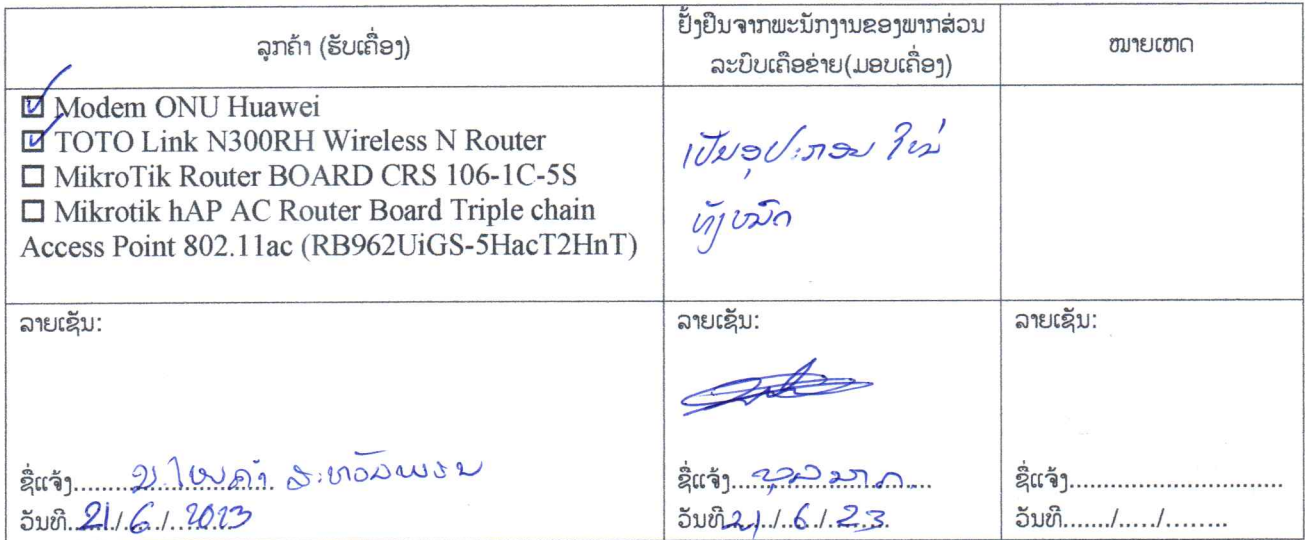 ລູກຄ້າ (ຮັບເຄື່ອງ)
ຢັ້ງຢືນຈາກພະນັກງານຂອງພາກສ່ວນ
ລະບົບເຄືອຂ່າຍ(ມອບເຄື່ອງ)
ໝາຍເຫດ
☑ Modem ONU Huawei
☑ TOTO Link N300RH Wireless N Router
☐ MikroTik Router BOARD CRS 106-1C-5S
☐ Mikrotik hAP AC Router Board Triple chain
Access Point 802.11ac (RB962UiGS-5HacT2HnT)
ເປັນອຸປະກອນ ໃໝ່
ທັງໝົດ
ລາຍເຊັນ:
ຊື່ແຈ້ງ
ວັນທີ 21/6/2023
ລາຍເຊັນ:
ຊື່ແຈ້ງ
ວັນທີ 21/6/23
ລາຍເຊັນ:
ຊື່ແຈ້ງ..............................
ວັນທີ......./...../.........